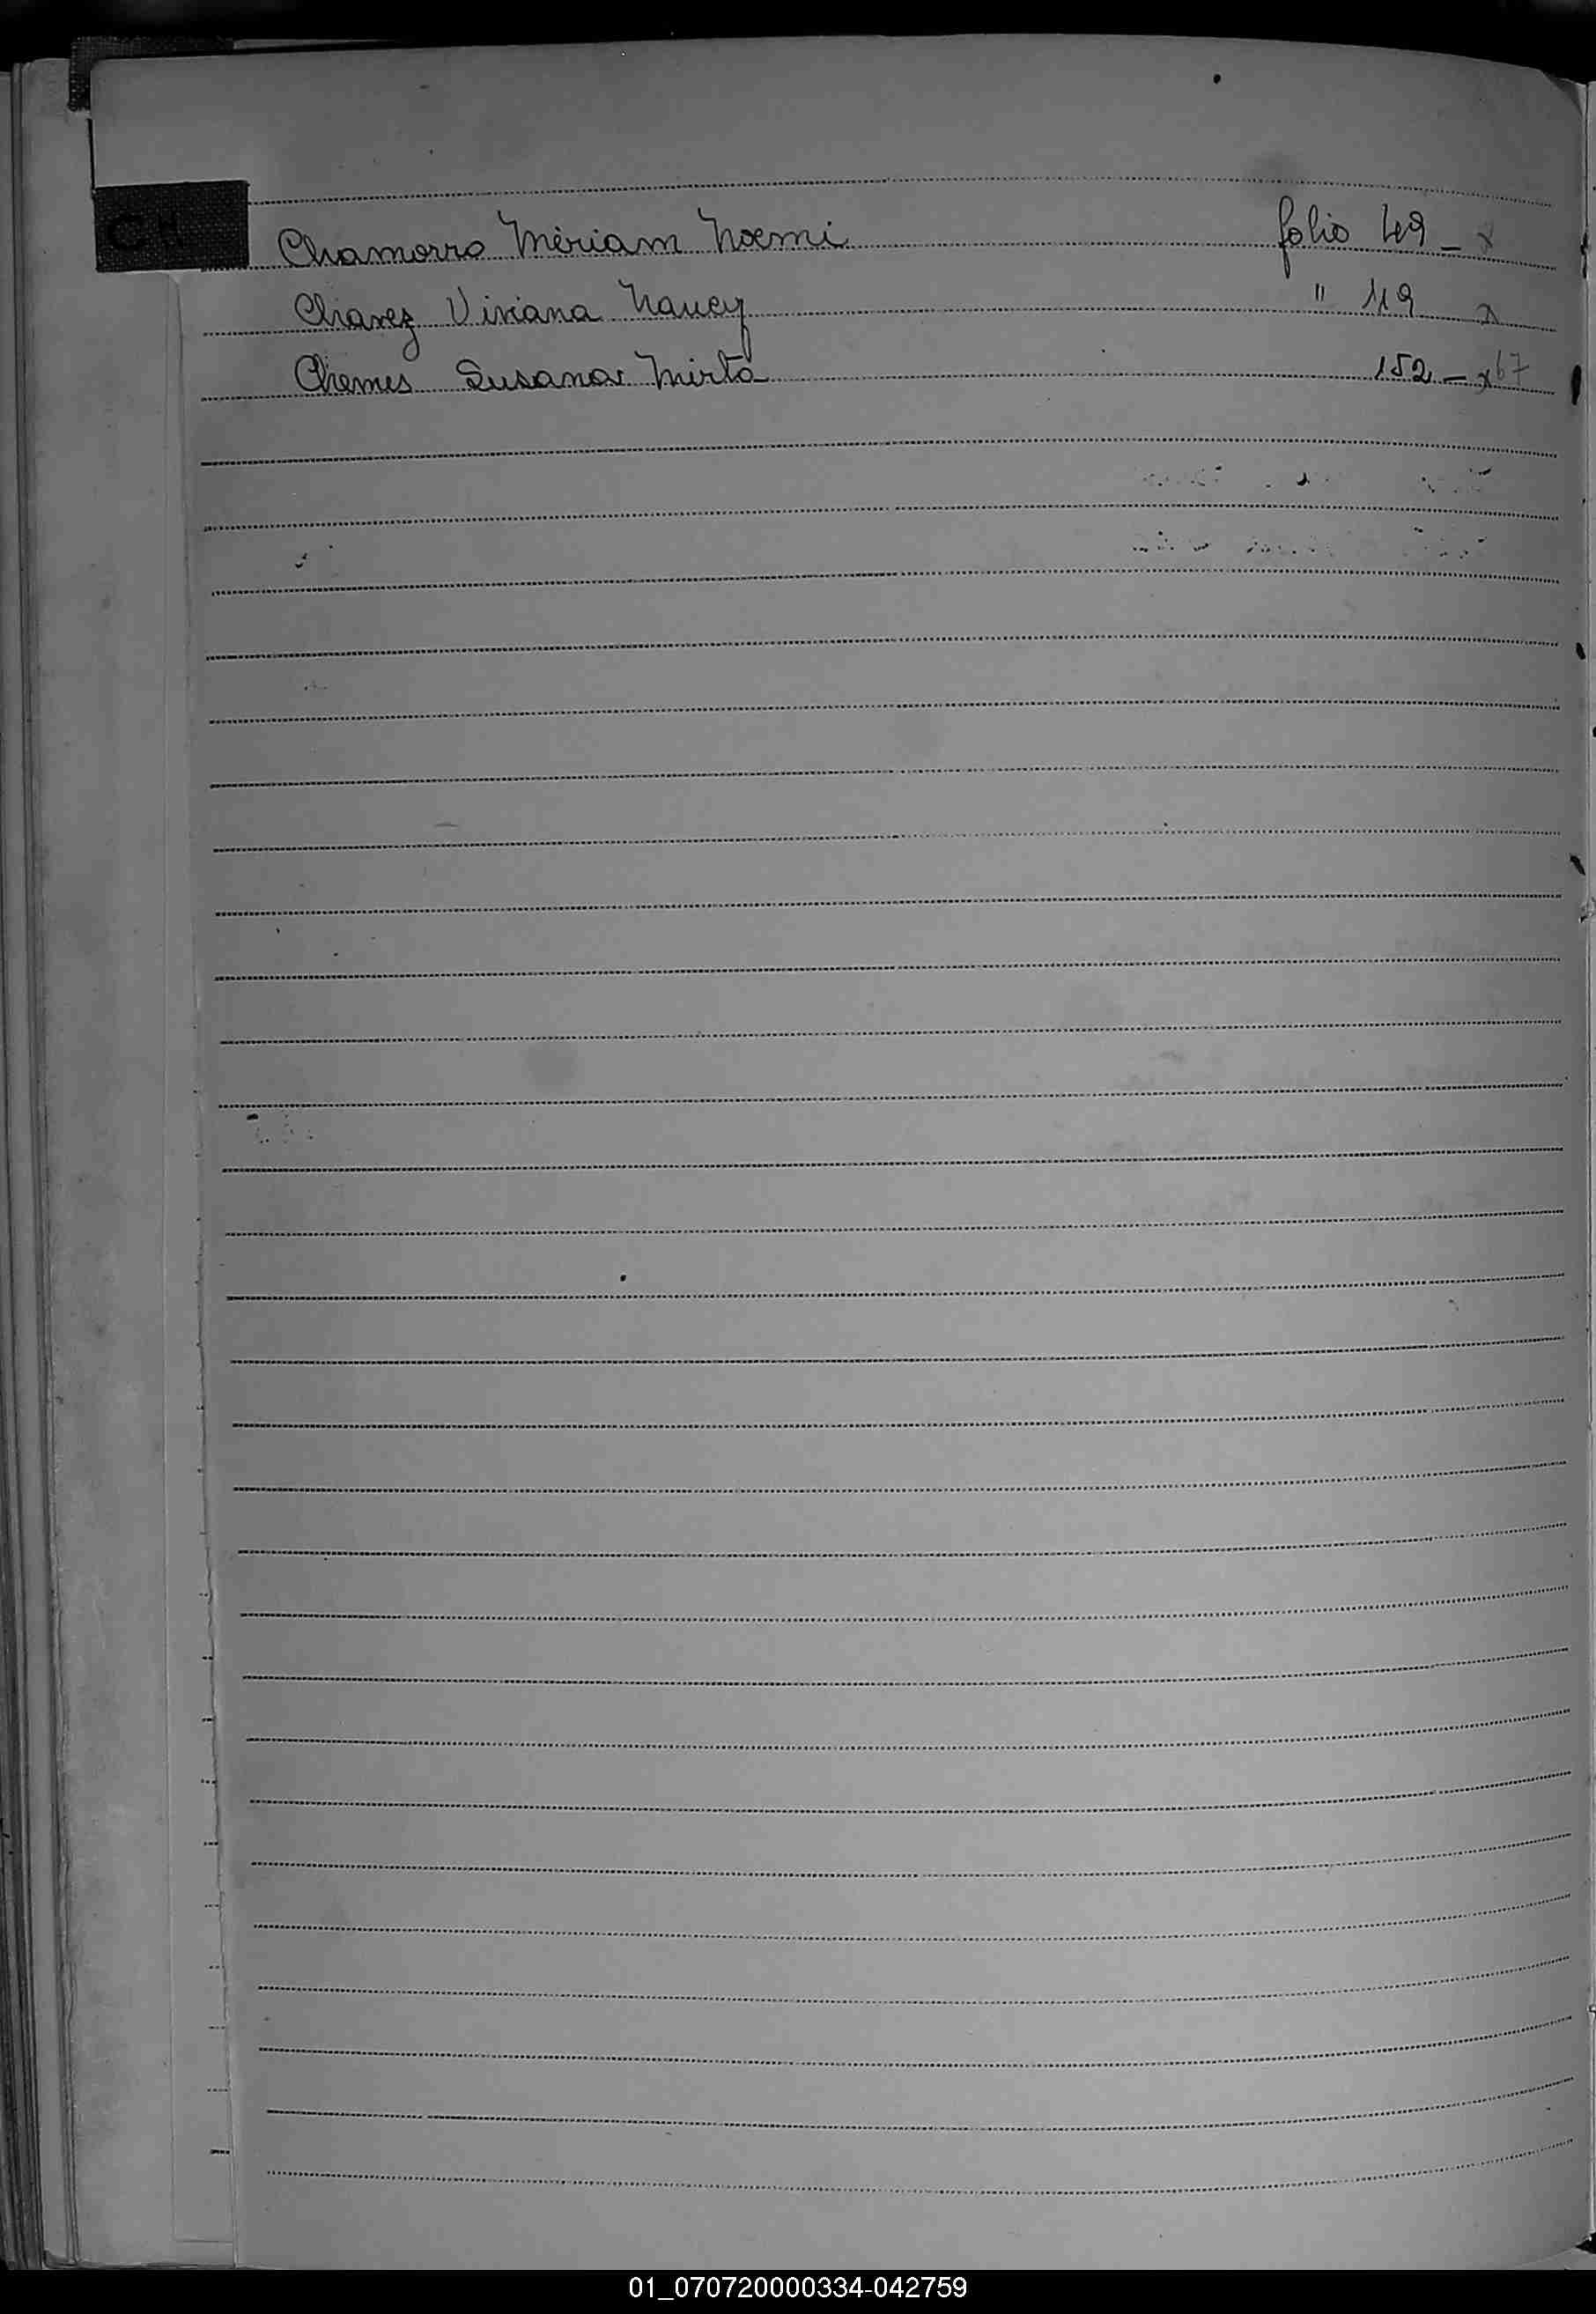 CH
Chamorro Miriam Noemi folio 49 - x
Chavez Viviana Nancy " 119 x
Chemes Susana Mirta 152 - x 67
01_070720000334-042759